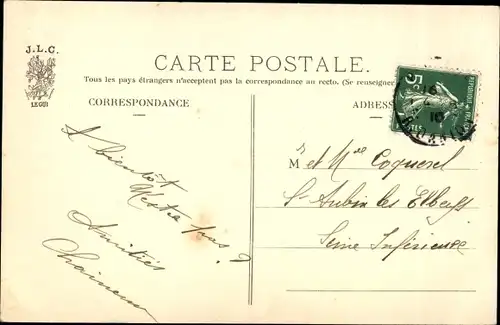 J.L.C.
LEGUI
CARTE POSTALE.
Tous les pays étrangers n'acceptent pas la correspondance au recto. (Se renseigner
CORRESPONDANCE
ADRESSE
5c
A bientôt
N'est ce pas ?
Amitiés
M et Mme Coquerel
St Aubin les Elbeuf
Seine Inférieure